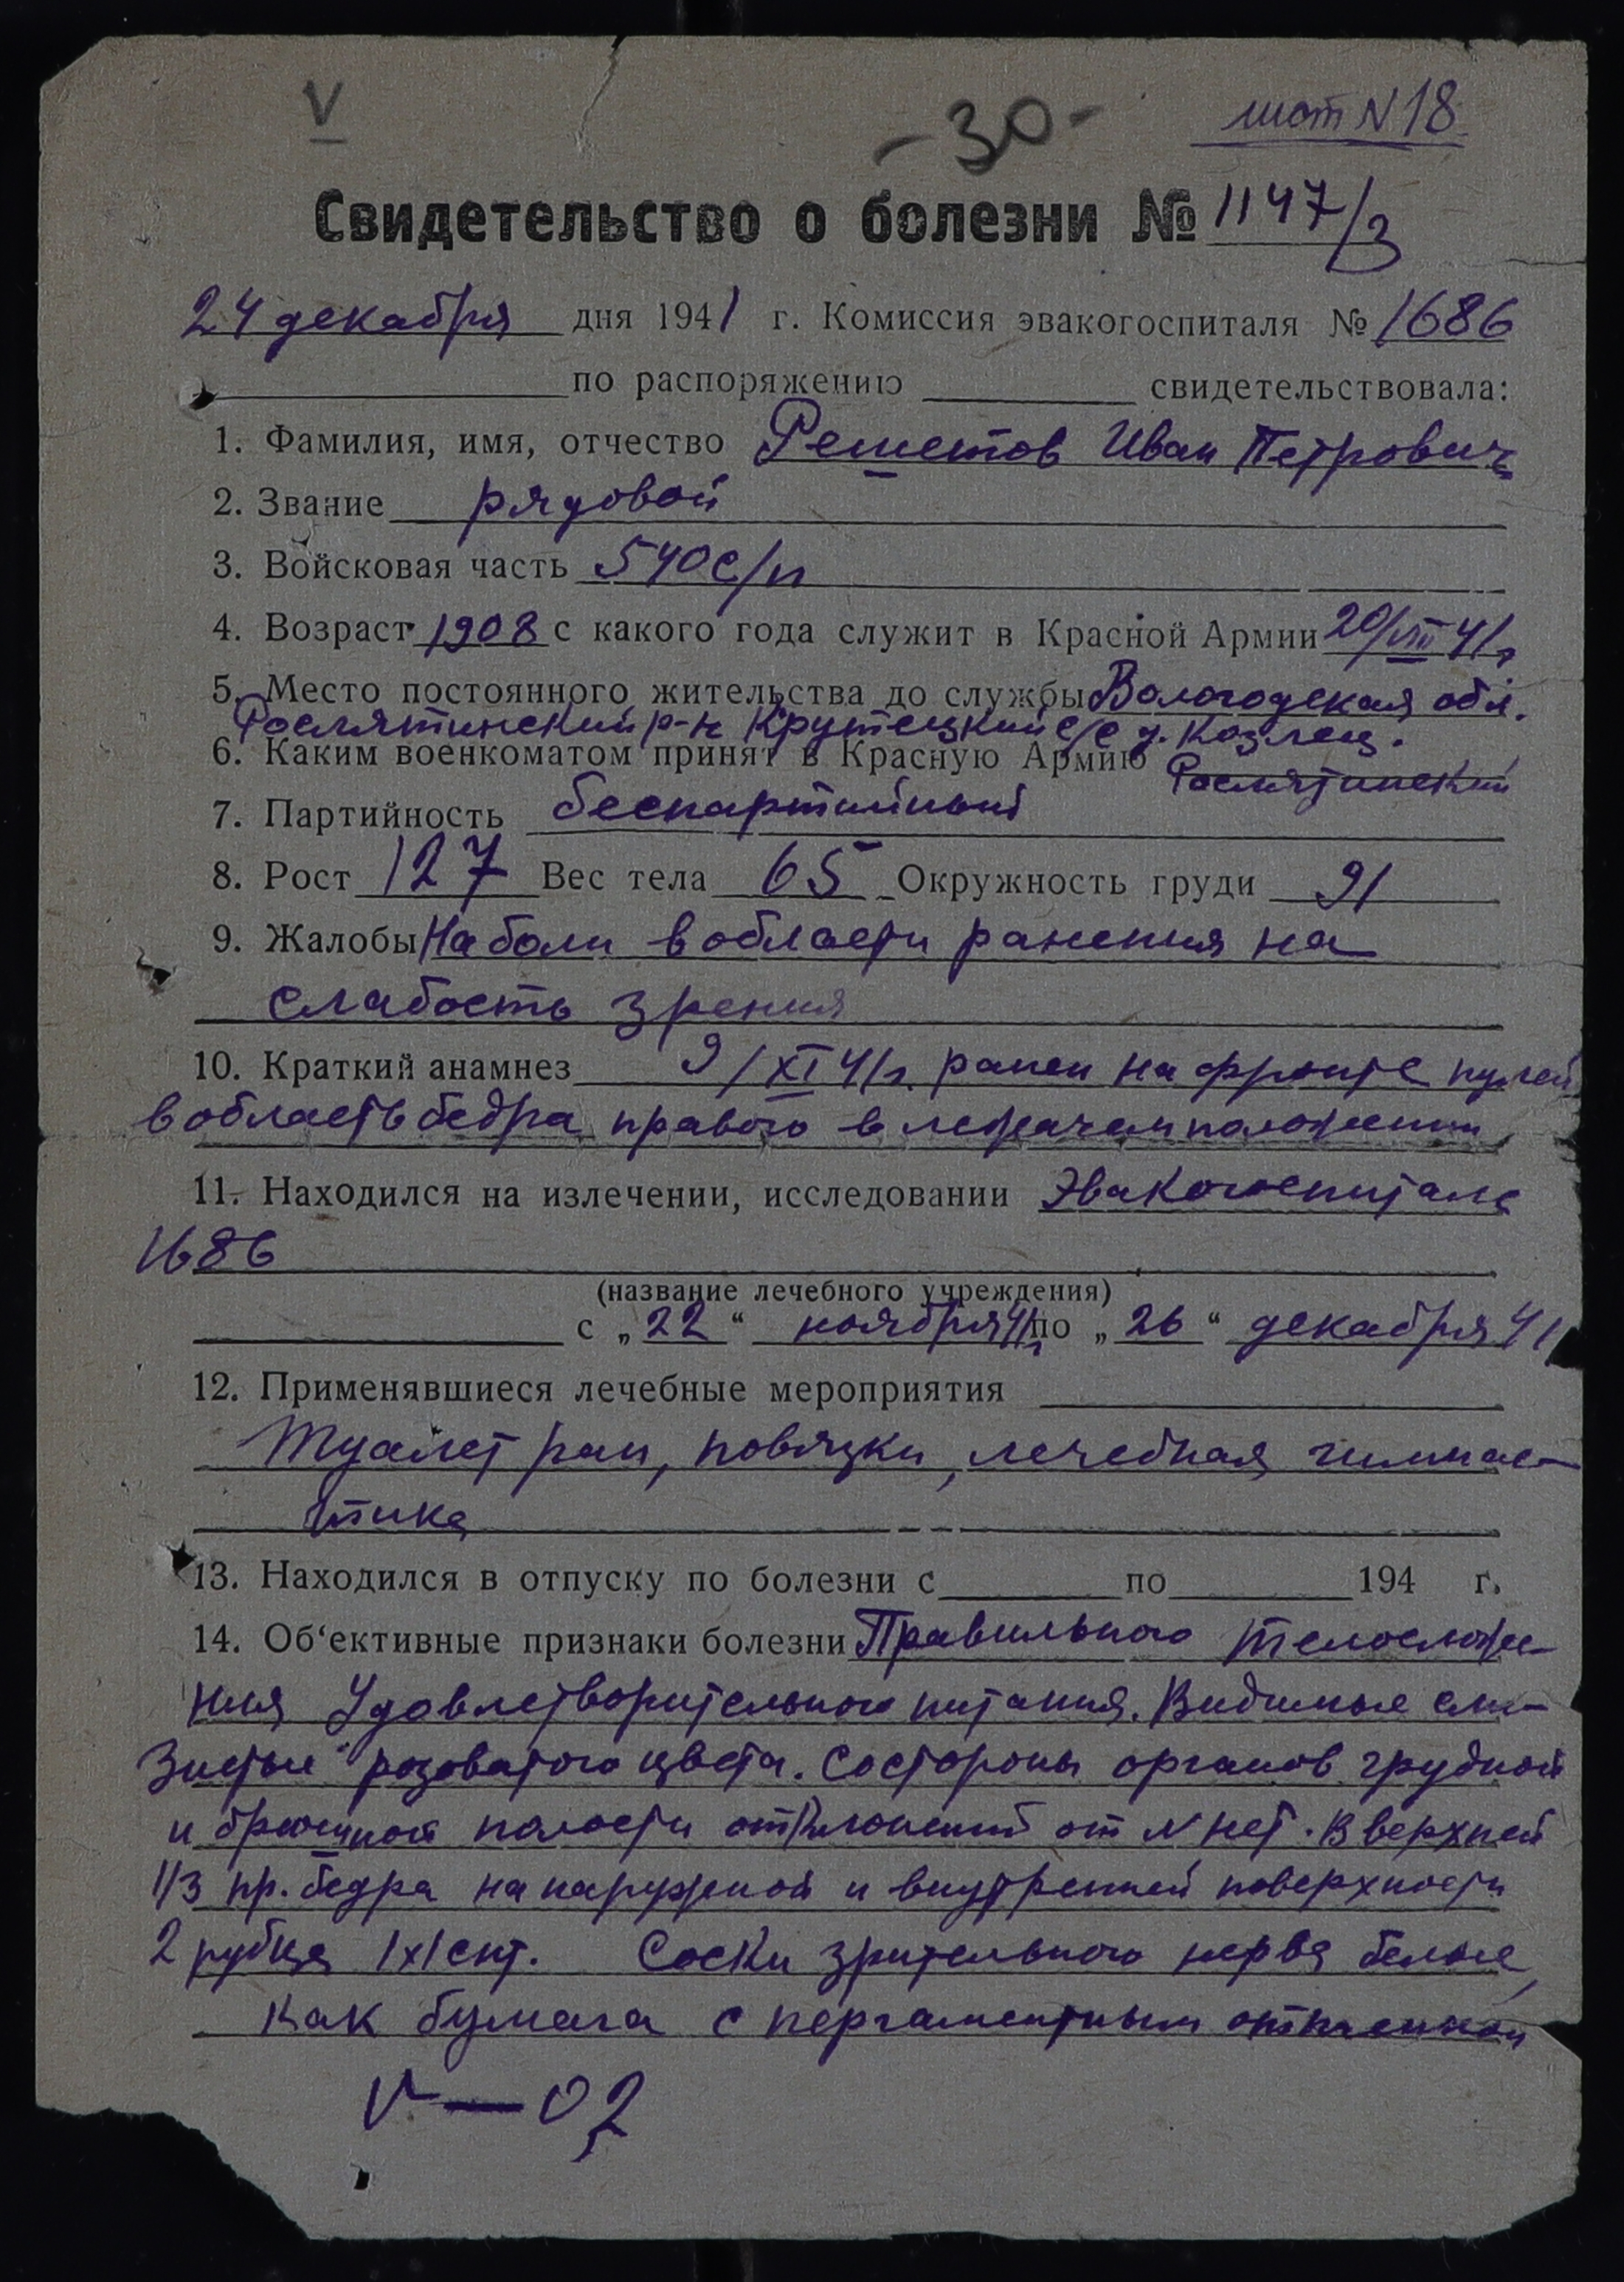 V
- 30 -
лист N 18
Свидетельство о болезни № 1147/3
24 декабря дня 1941 г. Комиссия эвакогоспиталя № 1686
по распоряжению свидетельствовала:
1. Фамилия, имя, отчество Решетов Иван Петрович
2. Звание рядовой
3. Войсковая часть 540 с/п
4. Возраст 1908 с какого года служит в Красной Армии 20/VIII 41 г
5. Место постоянного жительства до службы Вологодская обл.
Рослятинский р-н Крутецкий с/с д. Козлец.
6. Каким военкоматом принят в Красную Армию Рослятинский
7. Партийность беспартийный
8. Рост 127 Вес тела 65 Окружность груди 91
9. Жалобы На боли в области ранения на
слабость зрения
10. Краткий анамнез 9/XI 41 г. ранен на фронте пулей
в область бедра правого в лежачем положении
11. Находился на излечении, исследовании Эвакогоспитале
1686
(название лечебного учреждения)
с „22“ ноября 41 г по „26“ декабря 41
12. Применявшиеся лечебные мероприятия
Туалет ран, повязки, лечебная гимнас-
тика
13. Находился в отпуску по болезни с по 194 г.
14. Об'ективные признаки болезни Правильного телосложе-
ния Удовлетворительного питания. Видимые сли-
зистые розоватого цвета. Со стороны органов грудной
и брюшной полости отклонений от N нет. В верхней
1/3 пр. бедра на наружной и внутренней поверхности
2 рубца 1х1 снт. Соски зрительного нерва белые,
как бумага с пергаментным оттенком
V — 02